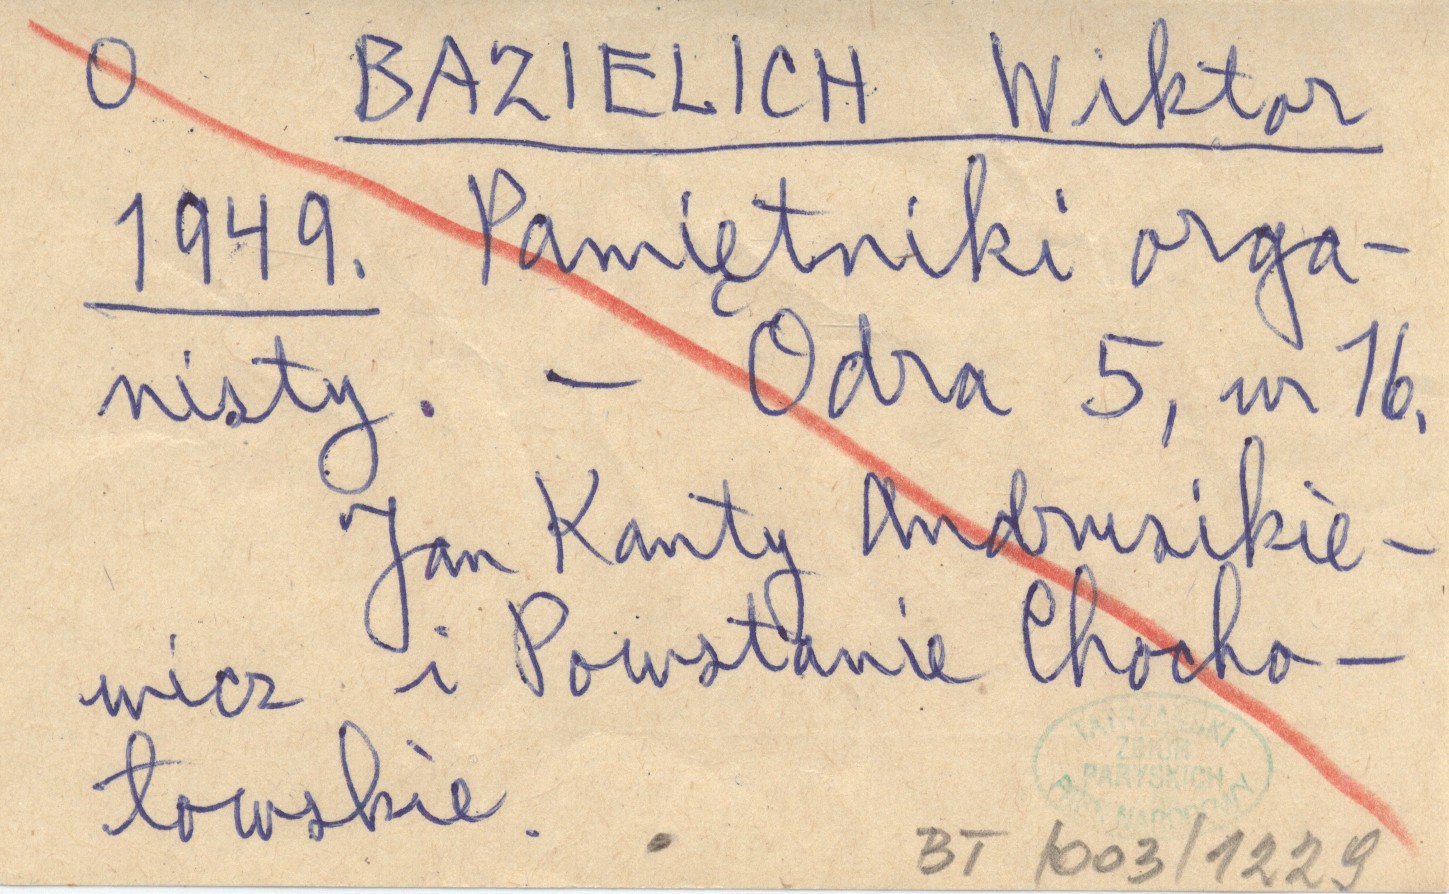 O BAZIELICH Wiktor
1949. Pamiętniki orga-
nisty. - Odra 5, nr 16.
Jan Kanty Andrusikie-
wicz i Powstanie Chocho-
łowskie.
TATRZAŃSKI
ZBIÓR
PARYSKICH
PARK NARODOWY
BT /003/1229